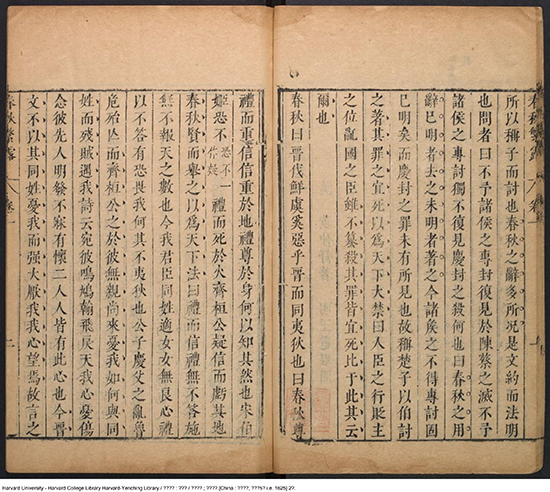 春秋繁露
所以稱子而討也春秋之辭多所况是文約而法明
也問者曰不予諸侯之專封復見於陳蔡之滅不予
諸侯之專討獨不復見慶封之殺何也曰春秋之用
辭已明者去之未明者著之今諸侯之不得專討固
已明矣而慶封之罪未有所見也故稱楚子以伯討
之著其罪之宜死以爲天下大禁曰人臣之行貶主
之位亂國之臣雖不簒殺其罪皆宜死比于此其云
爾也
春秋曰晉伐鮮虞奚惡乎晉而同夷狄也曰春秋尊
禮而重信信重於地禮尊於身何以知其然也宋伯
姬恐不恐不一作疑禮而死於火齊桓公疑信而虧其地
春秋賢而舉之以爲天下法曰禮而信禮無不答施
無不報天之數也今我君臣同姓適女女無良心禮
以不答有恐畏我何其不夷狄也公子慶父之亂魯
危殆亡而齊桓公之於彼無親尚來憂我如何與同
姓而殘賊遇我詩云宛彼鳴鳩翰飛戾天我心憂傷
念彼先人明發不寐有懷二人人皆有此心也今晉
文不以其同姓憂我而强大厭我我心望焉故言之
春秋繁露 卷一 二
Harvard University - Harvard College Library Harvard-Yenching Library / ???? : ??? / ???? ; ???? [China : ????, ???5? i.e. 1625] 2?.